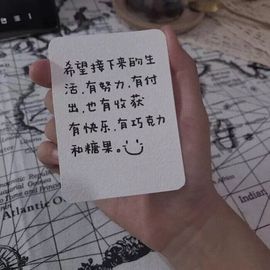 希望接下来的生
活,有努力,有付
出,也有收获
有快乐,有巧克力
和糖果。
Atlantic Ocean
Indian